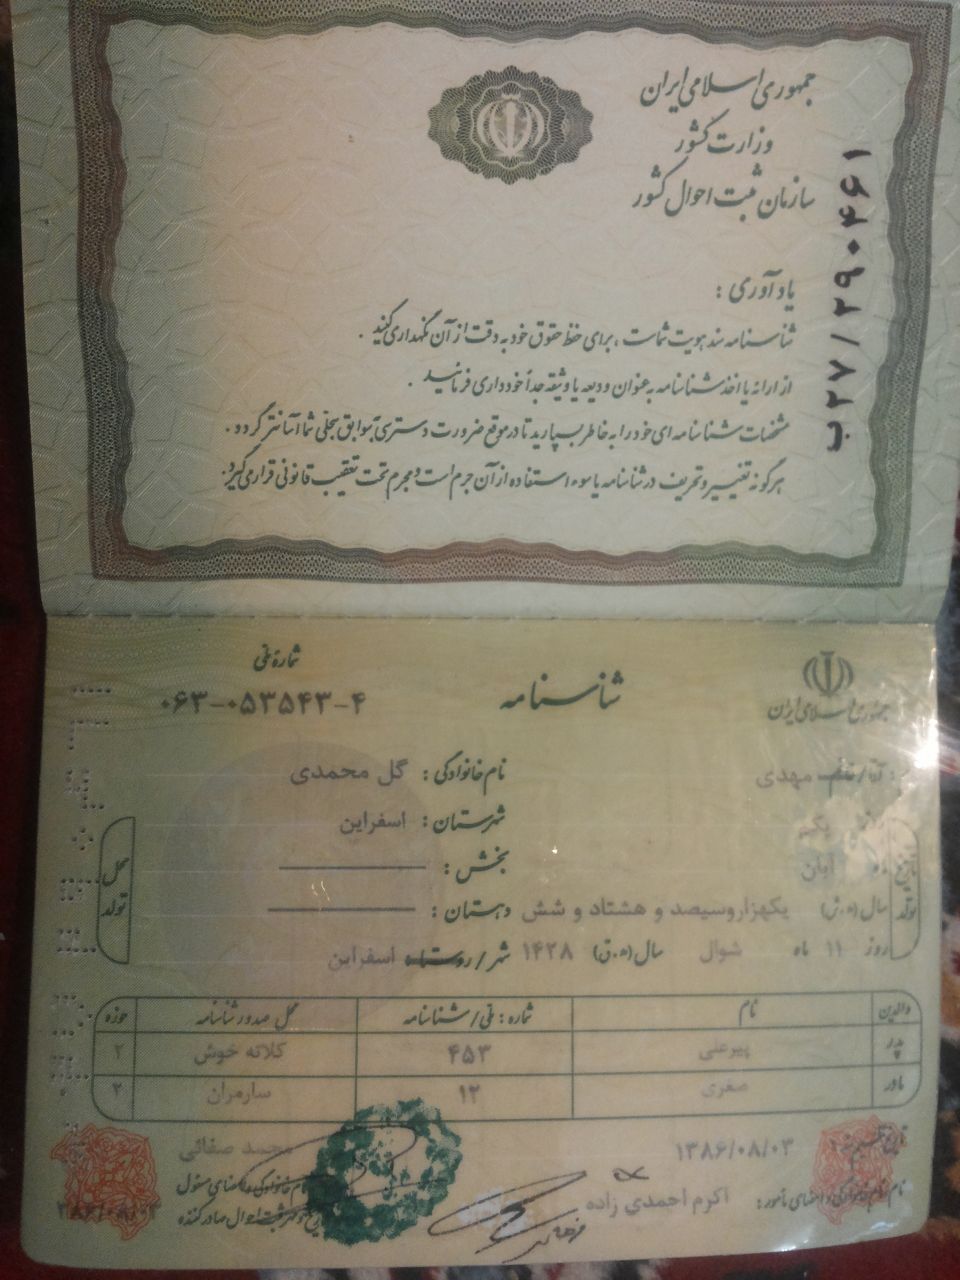 جمهوری اسلامی ایران
وزارت کشور
سازمان ثبت احوال کشور
ب۲۷/۲۹۰۴۶۱
یادآوری :
شناسنامه سند هویت شماست ، برای حفظ حقوق خود به دقت از آن نگهداری کنید .
از ارائه یا اخذ شناسنامه به عنوان ودیعه یا وثیقه جداً خودداری فرمائید .
مشخصات شناسنامه ای خود را به خاطر بسپارید تا در موقع ضرورت دسترسی به سوابق سجلی شما آسانتر گردد .
هرگونه تغییر و تحریف در شناسنامه یا سوء استفاده از آن جرم است و مجرم تحت تعقیب قانونی قرار می گیرد.
جمهوری اسلامی ایران
شناسنامه
شماره ملی
۰۶۳-۰۵۳۵۴۳-۴
آقا/خانم مهدی
نام خانوادگی : گل محمدی
تاریخ تولد
یکم
شهرستان : اسفراین
محل تولد
آبان
بخش :
سال (ه.ش) یکهزاروسیصد و هشتاد و شش
دهستان :
روز ۱۱ ماه شوال سال (ه.ق) ۱۴۲۸
شهر/روستا اسفراین
والدین نام شماره : ملی/شناسنامه محل صدور شناسنامه حوزه
پدر پیرعلی ۴۵۳ کلاته خوش ۲
مادر صغری ۱۲ سارمران ۲
تاریخ تنظیم ۱۳۸۶/۰۸/۰۳
محمد صفائی
نام و نام خانوادگی و امضای مأمور : اکرم احمدی زاده
نام خانوادگی و امضای مسئول